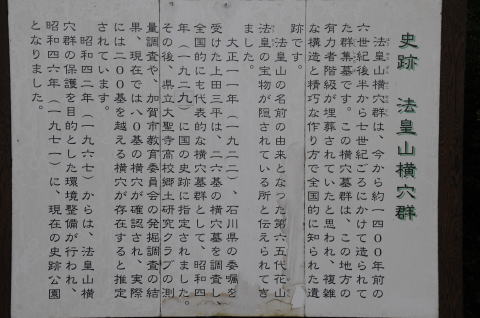 史跡　法皇山横穴群
法皇山横穴群は、今から約一四〇〇年前の
六世紀後半から七世紀ごろにかけて造られて
た群集墓です。この横穴墓群は、この地方の
有力者階級が埋葬されていたと思われ、複雑
な構造と精巧な作り方で全国的に知られた遺
跡です。
法皇山の名前の由来となった第六五代花山
法皇の宝物が隠されている所と伝えられてき
ました。
大正一一年（一九二二）、石川県の委嘱を
受けた上田三平は、二六基の横穴墓を調査し、
全国的にも代表的な横穴墓群として、昭和四
年（一九二九）に国の史跡に指定されました。
その後、県立大聖寺高校郷土研究クラブの測
量調査や、加賀市教育委員会の発掘調査の結
果、現在では八〇基の横穴が確認され、実際
には二〇〇基を越える横穴が存在すると推定
されています。
昭和四二年（一九六七）からは、法皇山横
穴群の保護を目的とした環境整備が行われ、
昭和四六年（一九七一）に、現在の史跡公園
となりました。